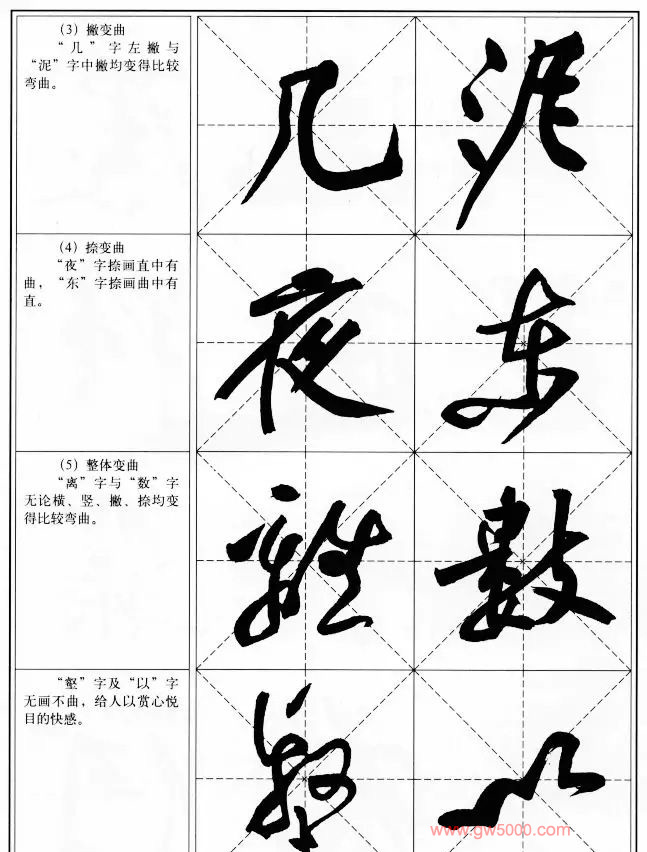 （3）撇变曲
“几”字左撇与
“泥”字中撇均变得比较
弯曲。
几 泥
（4）捺变曲
“夜”字捺画直中有
曲，“东”字捺画曲中有
直。
夜 東
（5）整体变曲
“离”字与“数”字
无论横、竖、撇、捺均变
得比较弯曲。
離 數
“壑”字及“以”字
无画不曲，给人以赏心悦
目的快感。
壑 以
www.gw5000.com